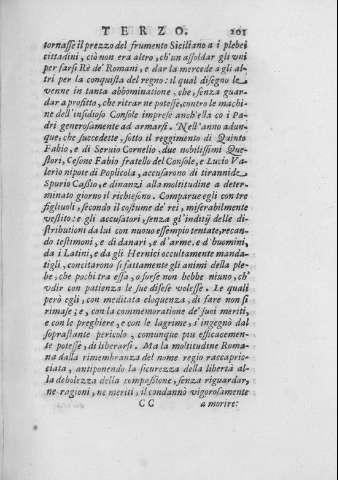 TERZO. 201
tornasse il prezzo del frumento Siciliano a i plebei
cittadini, ciò non era altro, ch'un assoldar gli vni
per farsi Rè de' Romani, e dar la mercede a gli al-
tri per la conquista del regno: il qual disegno le
venne in tanta abbominatione, che, senza guar-
dar a profitto, che ritrar ne potesse, contro le machi-
ne dell'insidioso Console imprese anch'ella co i Pa-
dri generosamente ad armarsi. Nell'anno adun-
que, che succedette, sotto il reggimento di Quinto
Fabio, e di Seruio Cornelio, due nobilissimi Que-
stori, Cesone Fabio fratello del Console, e Lucio Va-
lerio nipote di Poplicola, accusarono di tirannide
Spurio Cassio, e dinanzi alla moltitudine a deter-
minato giorno il richiesono. Comparue egli con tre
figliuoli, secondo il costume de' rei, miserabilmente
vestito: e gli accusatori, senza gl'inditij delle di-
stributioni da lui con nuouo essempio tentate, recan-
do testimoni, e di danari, e d'arme, e d'huomini,
da i Latini, e da gli Hernici occultamente manda-
tigli, concitarono sì fattamente gli animi della ple-
be, che pochi tra essa, o forse non hebbe niuno, ch'
vdir con patienza le sue difese volesse. Le quali
però egli, con meditata eloquenza, di fare non si
rimase; e, con la commemoratione de' suoi meriti,
e con le preghiere, e con le lagrime, s'ingegnò dal
soprastante pericolo, comunque più efficacemen-
te potesse, di liberarsi. Ma la moltitudine Roma-
na dalla rimembranza del nome regio raccapric-
ciata, antiponendo la sicurezza della libertà al-
la debolezza della compassione, senza riguardar,
ne ragioni, ne meriti, il condannò vigorosamente
CC a morire: